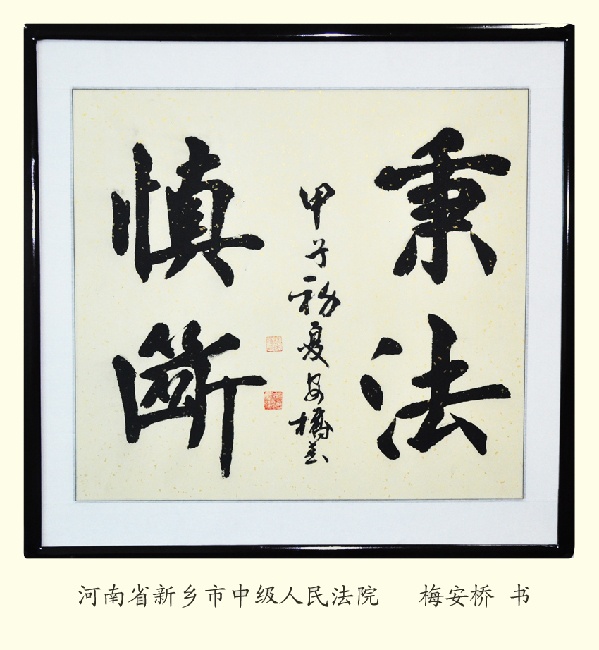 秉法
慎斷
甲子初夏安橋書
河南省新乡市中级人民法院 梅安桥 书